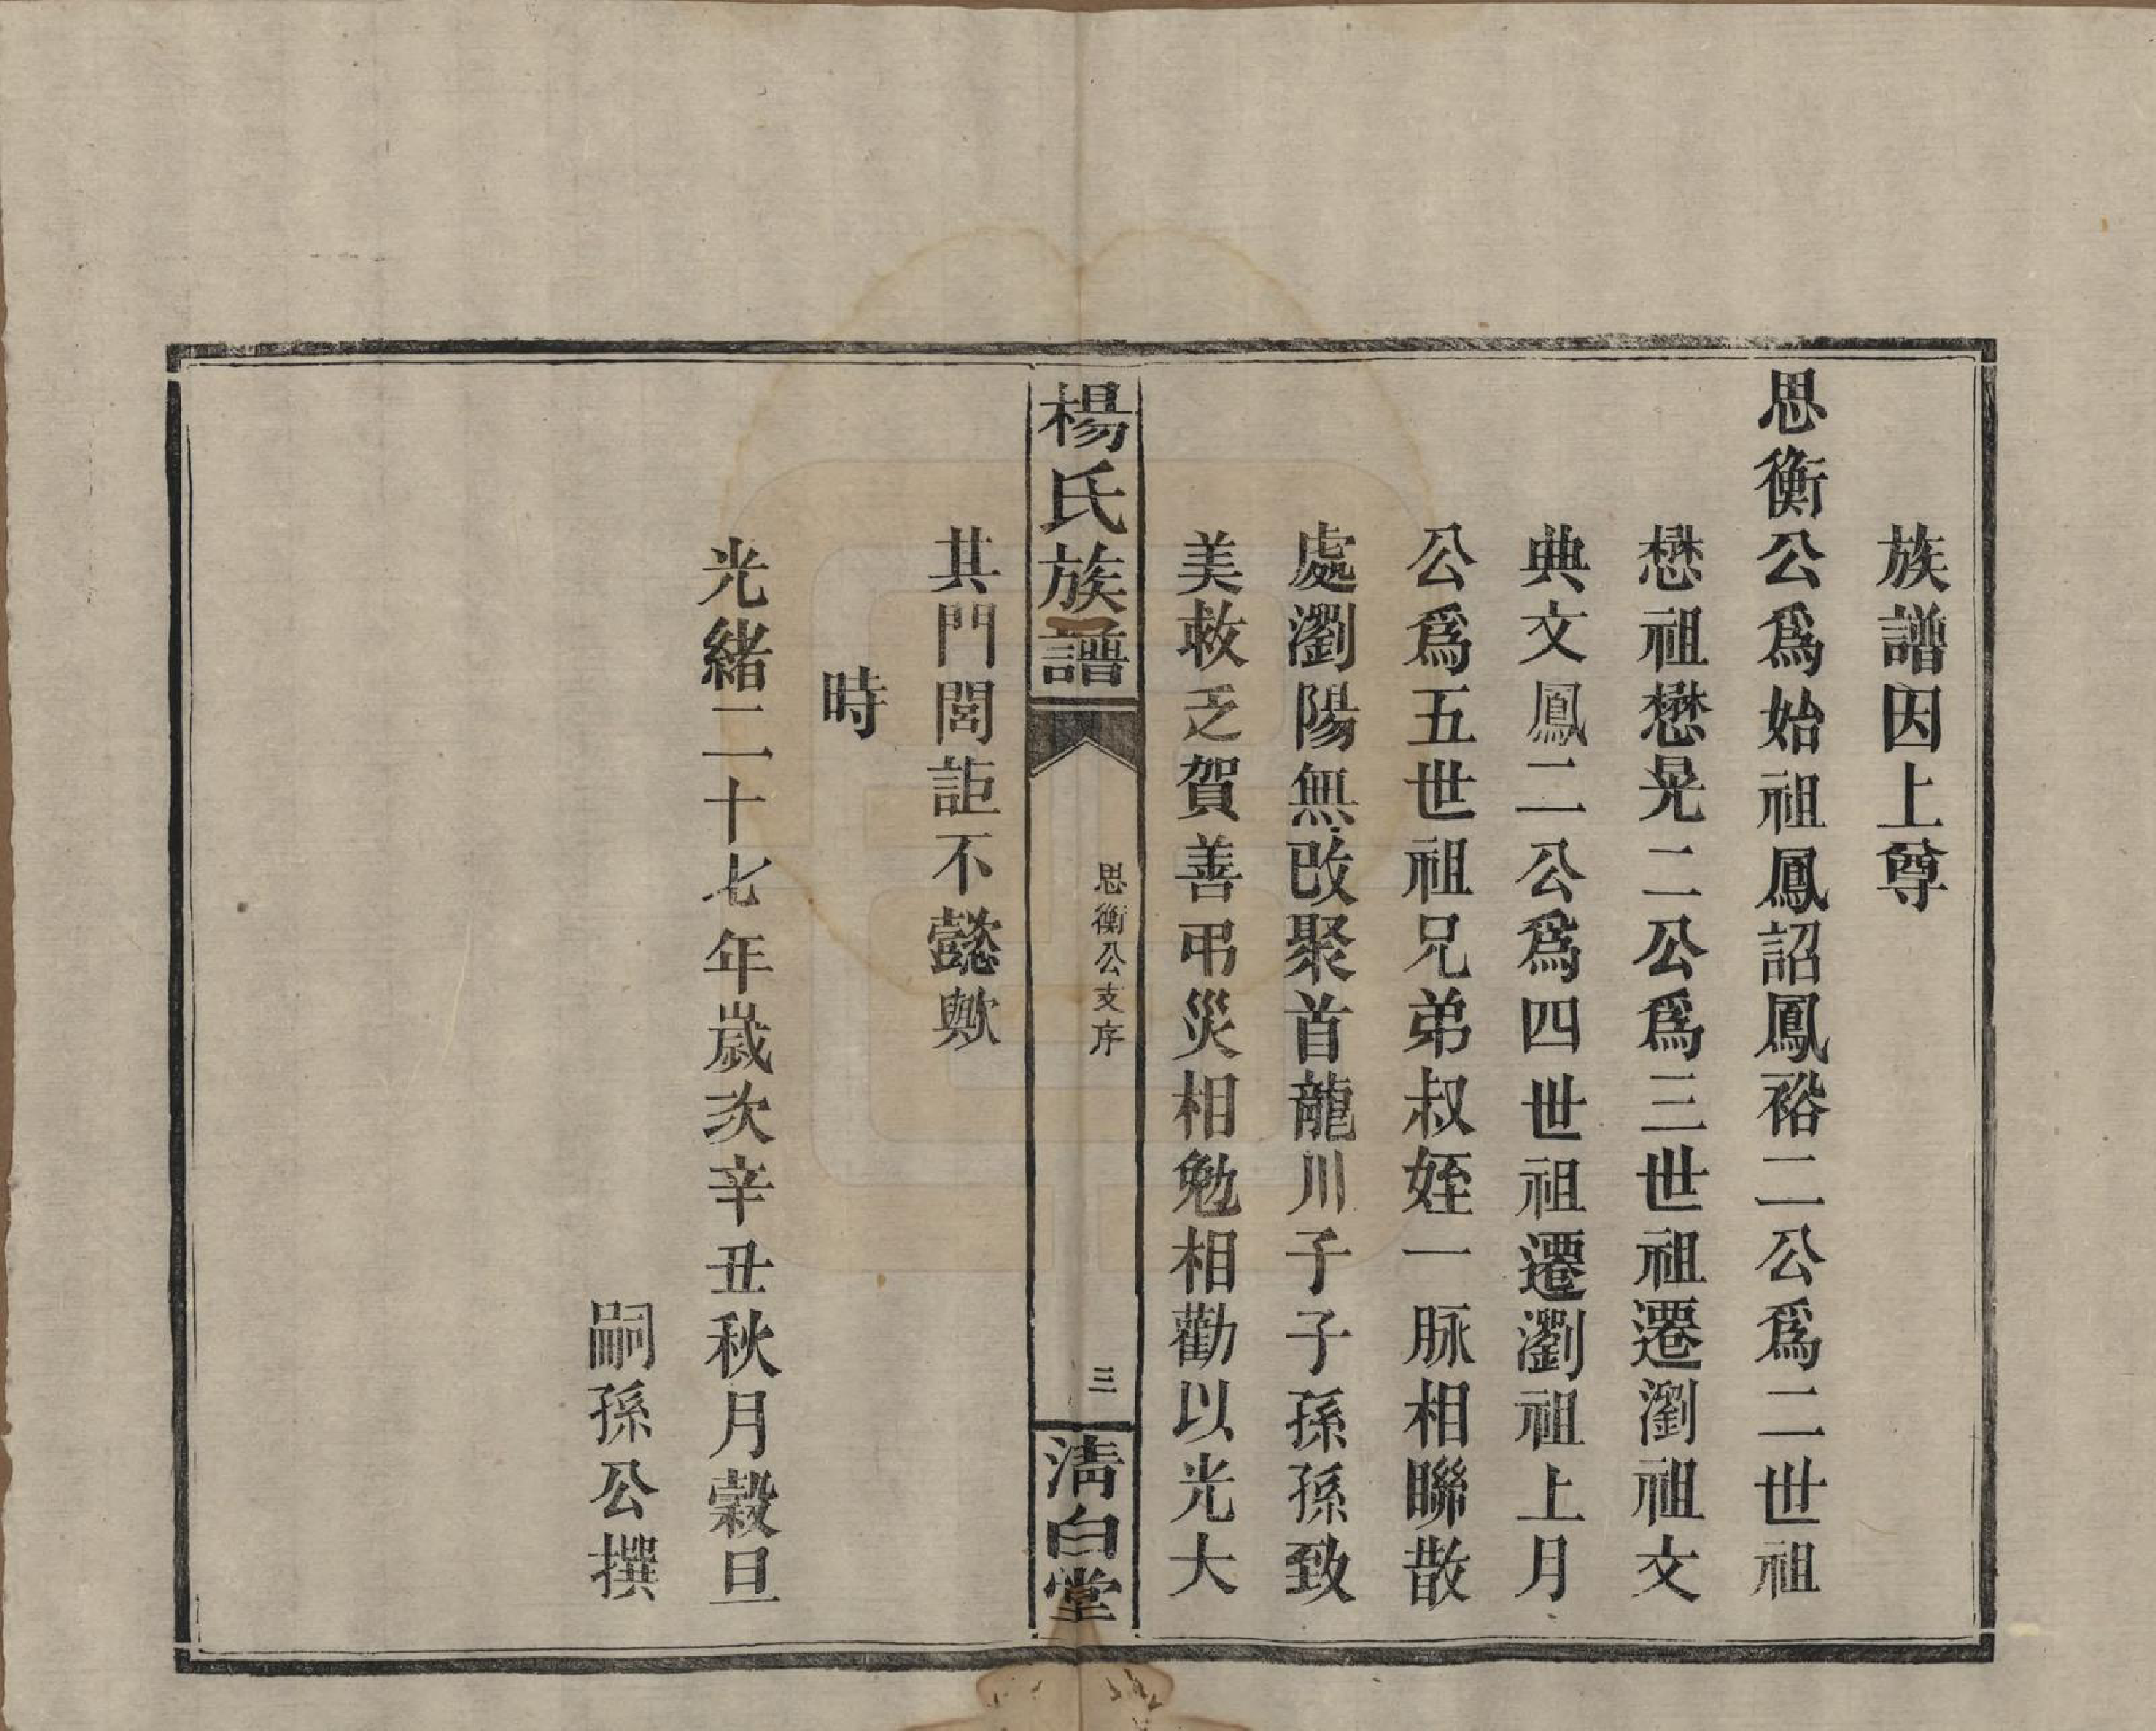 族譜因上尊
思衡公爲始祖鳳詔鳳裕二公爲二世祖
懋祖懋晃二公爲三世祖遷瀏祖文
典文鳳二公爲四世祖遷瀏祖上月
公爲五世祖兄弟叔姪一脉相聯散
處瀏陽無改聚首龍川子子孫孫致
美救乏賀善弔災相勉相勸以光大
楊氏族譜
思衡公支序
三
淸白堂
其門閭詎不懿歟
時
光緒二十七年歲次辛丑秋月穀旦
嗣孫公撰